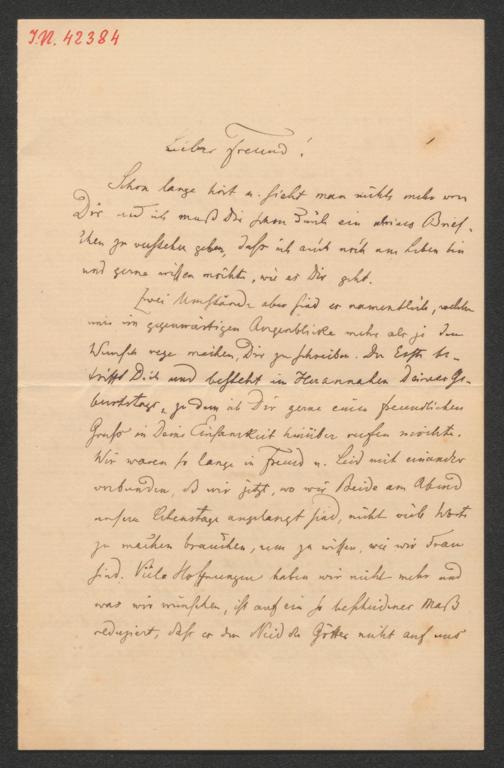 I.N. 42384
Lieber Freund!
Schon lange hört u. sieht man nichts mehr von
Dir und ich muß Dir schon durch ein kleines Brief-
chen zu verstehen geben, daß ich auch noch am Leben bin
und gerne wissen möchte, wie es Dir geht.
Zwei Umstände aber sind es namentlich, welche
mir im gegenwärtigen Augenblicke mehr als je den
Wunsch rege machen, Dir zu schreiben. Der Erste be-
trifft Dich und besteht im Herannahen Deines Ge-
burtstages, zu dem ich Dir gerne einen freundlichen
Gruß in Deine Einsamkeit hinüber rufen möchte.
Wir waren so lange in Freud u. Leid mit einander
verbunden, daß wir jetzt, wo wir Beide am Abend
unserer Lebenstage angelangt sind, nicht viele Worte
zu machen brauchen, um zu wissen, wie wir
sind. Viele Hoffnungen haben wir nicht mehr und
was wir wünschen, ist auf ein so bescheidenes Maß
reduziert, daß es den Neid der Götter nicht auf uns